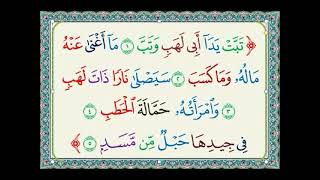 ﴿ تَبَّتْ يَدَا أَبِى لَهَبٍ وَتَبَّ ۝١ مَا أَغْنَىٰ عَنْهُ
مَالُهُۥ وَمَا كَسَبَ ۝٢ سَيَصْلَىٰ نَارًا ذَاتَ لَهَبٍ
۝٣ وَٱمْرَأَتُهُۥ حَمَّالَةَ ٱلْحَطَبِ ۝٤
فِى جِيدِهَا حَبْلٌ مِّن مَّسَدٍۭ ۝٥ ﴾